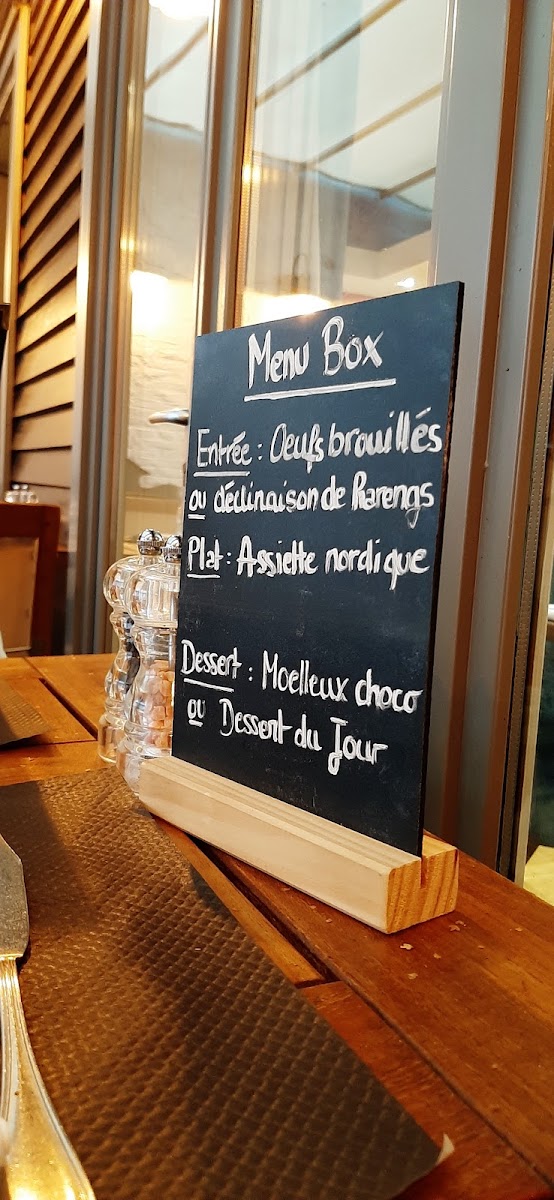 Menu Box
Entrée : Oeufs brouillés
ou déclinaison de Harengs
Plat : Assiette nordique
Dessert : Moelleux choco
ou Dessert du Jour